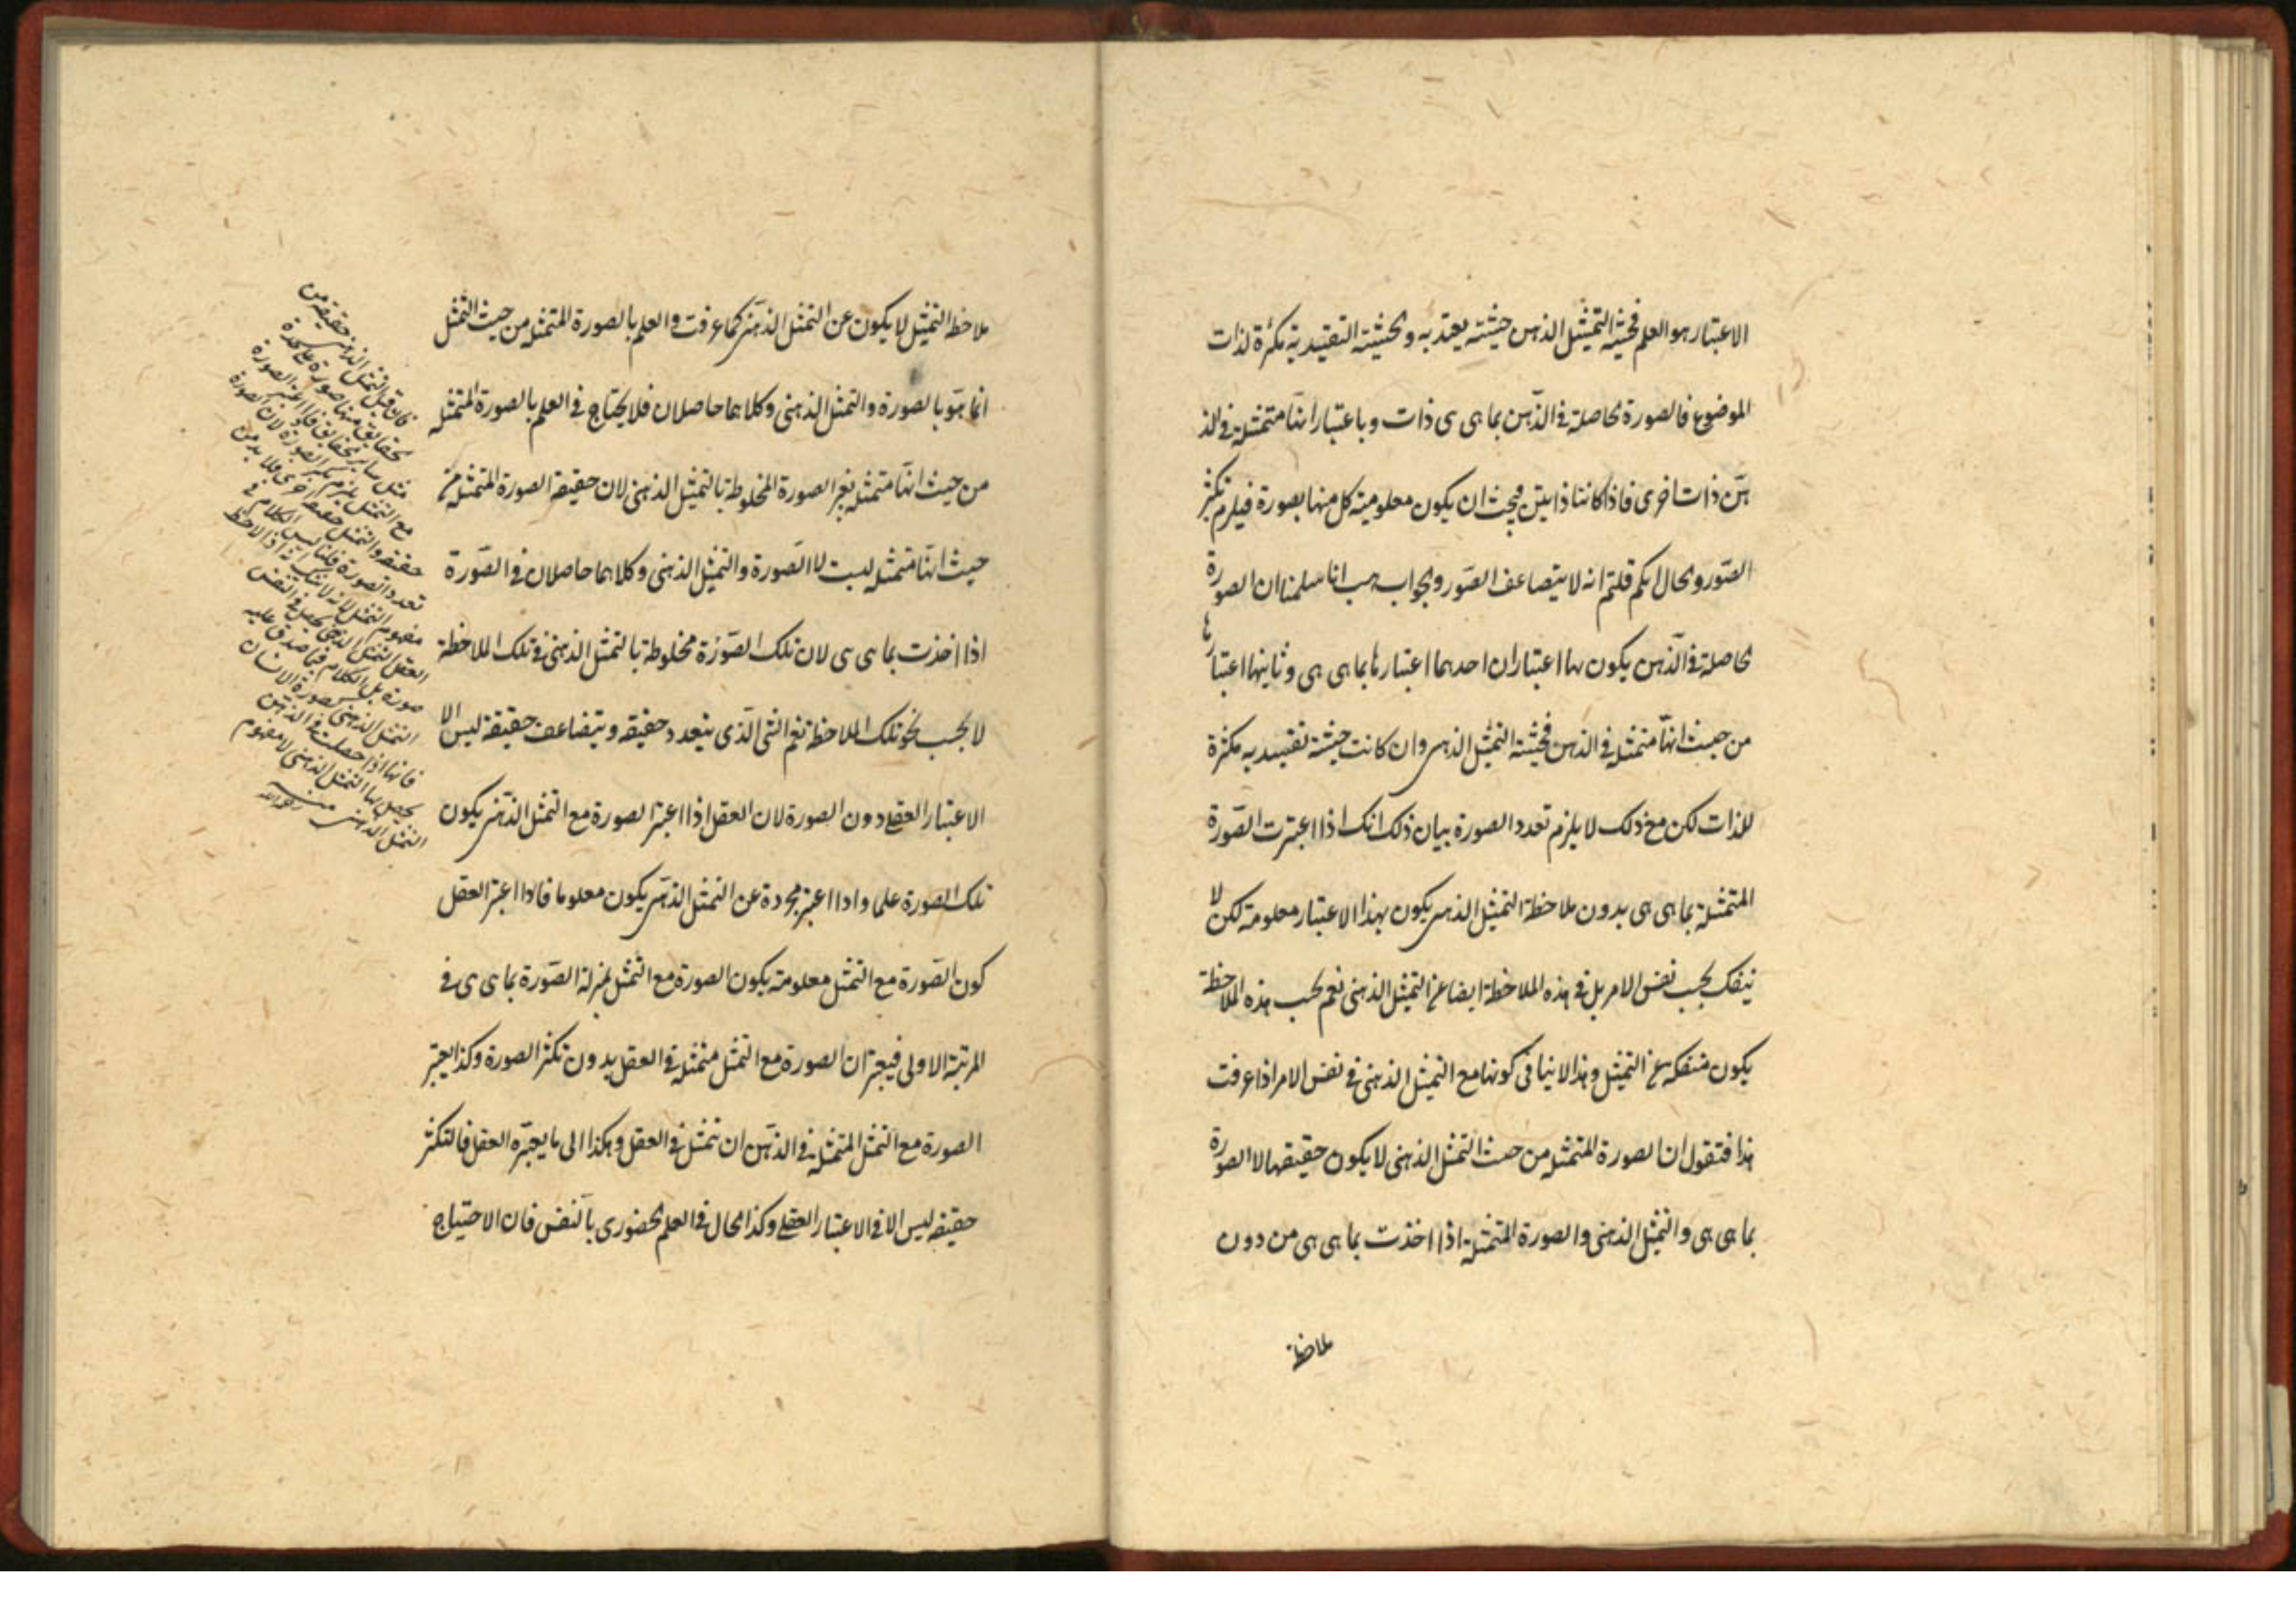 الاعتبار هو العلم فحيثية التمثيل الذهن حيثية يعتد به والحيثية التقييدية مكثرة لذات
الموضوع فالصورة الحاصلة فى الذهن بما هى هى ذات وباعتبار انها متمثلة فى الذ
هن ذات اخرى فاذا كانتا ذاتين فيجب ان يكون معلومية كل منها بصورة فيلزم تكثر
الصور والحال انكم قلتم انه لا يتضاعف الصور والجواب هب انا سلمنا ان الصورة
الحاصلة فى الذهن يكون لها اعتباران احدهما اعتبارها بما هى هى وثانيها اعتبارها
من حيث انها متمثلة فى الذهن فحيثية التمثيل الذهنى وان كانت حيثية تقييديه مكثرة
للذات لكن مع ذلك لا يلزم تعدد الصورة بيان ذلك انك اذا اعتبرت الصورة
المتمثلة بما هى هى بدون ملاحظة التمثيل الذهنى يكون بهذا الاعتبار معلومة لكن لا
ينفك بحسب نفس الامر بل فى هذه الملاحظة ايضا عن التمثيل الذهنى نعم بحسب هذه الملاحظة
يكون منفكه عن التمثيل وهذا لا ينافى كونها مع التمثيل الذهنى فى نفس الامر اذا عرفت
هذا فنقول ان الصورة المتمثله من حيث التمثل الذهنى لا يكون حقيقتها الا الصورة
بما هى هى والتمثيل الذهنى والصورة المتمثلة اذا اخذت بما هى هى من دون
ملاحظة
ملاحظة التمثيل لا يكون عن التمثل الذهنى كما عرفت والعلم بالصورة المتمثله من حيث التمثل
انما هو بالصورة والتمثل الذهنى وكلاهما حاصلان فلا يحتاج فى العلم بالصورة المتمثله
من حيث انها متمثله بغير الصورة المخلوطة بالتمثيل الذهنى لان حقيقة الصورة المتمثله من
حيث انها متمثله ليست الا الصورة والتمثيل الذهنى وكلاهما حاصلان فى الصورة
اذا اخذت بما هى هى لان تلك الصورة مخلوطة بالتمثل الذهنى فى تلك الملاحظة
لا بحسب تلك الملاحظة نعم الشى الذى يتعدد حقيقه ويتضاعف حقيقة ليس الا
الاعتبار العقلى دون الصورة لان العقل اذا اعتبر الصورة مع التمثل الذهنى يكون
تلك الصورة علما واذا اعتبر مجردة عن التمثل الذهنى يكون معلوما فاذا اعتبر العقل
كون الصورة مع التمثل معلومة يكون الصورة مع التمثل بمنزلة الصورة بما هى هى فى
المرتبة الاولى فيعتبر ان الصورة مع التمثل متمثلة فى العقل بدون تكثر الصورة وكذا يعتبر
الصورة مع التمثل المتمثلة فى الذهن ان تتمثل فى العقل وهكذا الى ما يعتبره العقل فالتكثر
حقيقه ليس الا فى الاعتبار العقلى وكذا الحال فى العلم الحضورى بالنفس فان الاحتياج
فان قيل التمثل الذهنى حقيقه من
الحقايق منها صورة على حدة
مثل ساير الحقايق فاذا اعتبر الصورة
مع التمثل يلزم تكثر الصورة لان الصورة
حقيقه والتمثل حقيقه اخرى فلا بد من
تعدد الصورة قلنا ليس الكلام فى
مفهوم التمثل لانه لا شك اذا لاحظ
العقل التمثل الذهنى يحصل فى النفس
صورة بل الكلام فيما صدق عليه
التمثل الذهنى كصورة الانسان
فانها اذا حصلت فى الذهن
يحصل بها التمثل الذهنى لا مفهوم
التمثل الذهنى منه رحمه الله